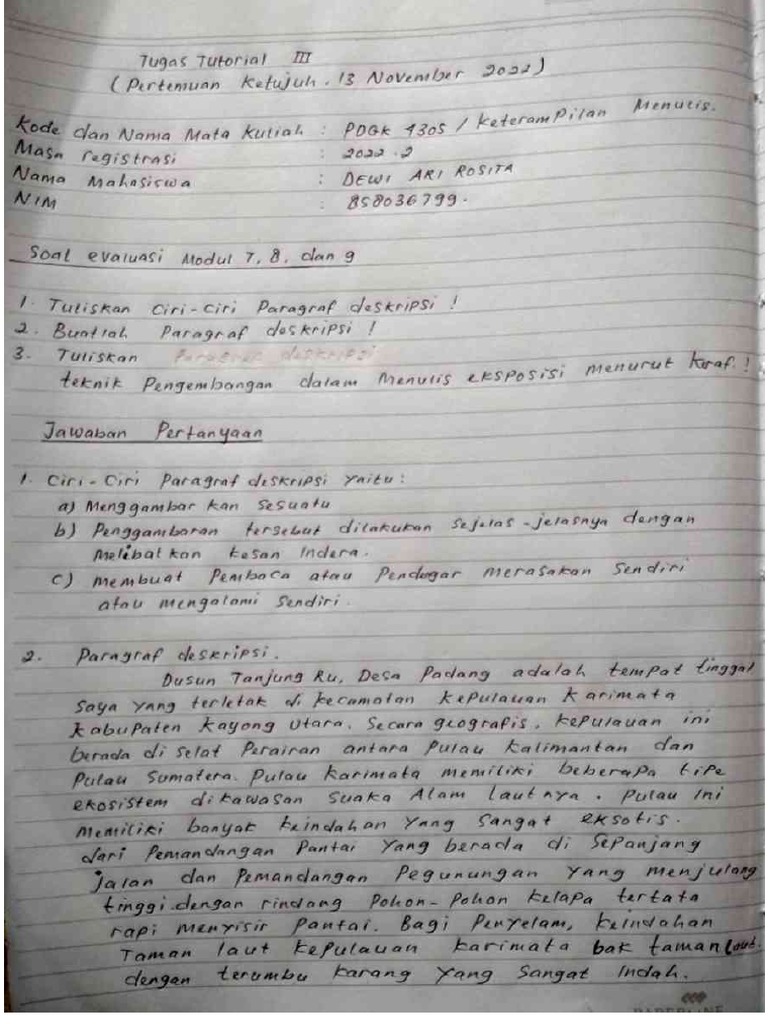 Tugas Tutorial III
(Pertemuan Ketujuh. 13 November 2022)
Kode dan Nama Mata Kuliah : PDGK 4305 / Keterampilan Menulis.
Masa registrasi : 2022.2
Nama Mahasiswa : DEWI ARI ROSITA
NIM : 858036799.
Soal evaluasi Modul 7, 8, dan 9
1. Tuliskan Ciri-Ciri Paragraf deskripsi !
2. Buatlah Paragraf deskripsi !
3. Tuliskan Paragraf deskripsi
teknik Pengembangan dalam Menulis eksposisi menurut Keraf. !
Jawaban Pertanyaan
1. Ciri-Ciri Paragraf deskripsi yaitu :
a) Menggambar kan Sesuatu
b) Penggambaran tersebut dilakukan Sejelas-jelasnya dengan
Melibat kan kesan Indera.
c) membuat Pembaca atau Pendengar merasakan Sendiri
atau mengalami Sendiri.
2. Paragraf deskripsi.
Dusun Tanjung Ru, Desa Padang adalah tempat tinggal
Saya yang terletak di kecamatan Kepulauan Karimata
kabupaten kayong Utara. Secara geografis, kepulauan ini
berada di Selat Perairan antara Pulau Kalimantan dan
Pulau Sumatera. Pulau Karimata memiliki beberapa tipe
ekosistem dikawasan Suaka Alam laut nya. Pulau Ini
Memiliki banyak keindahan Yang Sangat eksotis.
dari Pemandangan Pantai Yang berada di Sepanjang
jalan dan Pemandangan Pegunungan Yang menjulang
tinggi.dengan rindang Pohon-Pohon Kelapa tertata
rapi menyisir Pantai. Bagi Penyelam, keindahan
Taman laut Kepulauan karimata bak taman laut.
dengan terumbu karang Yang Sangat Indah.
PAPERLINE